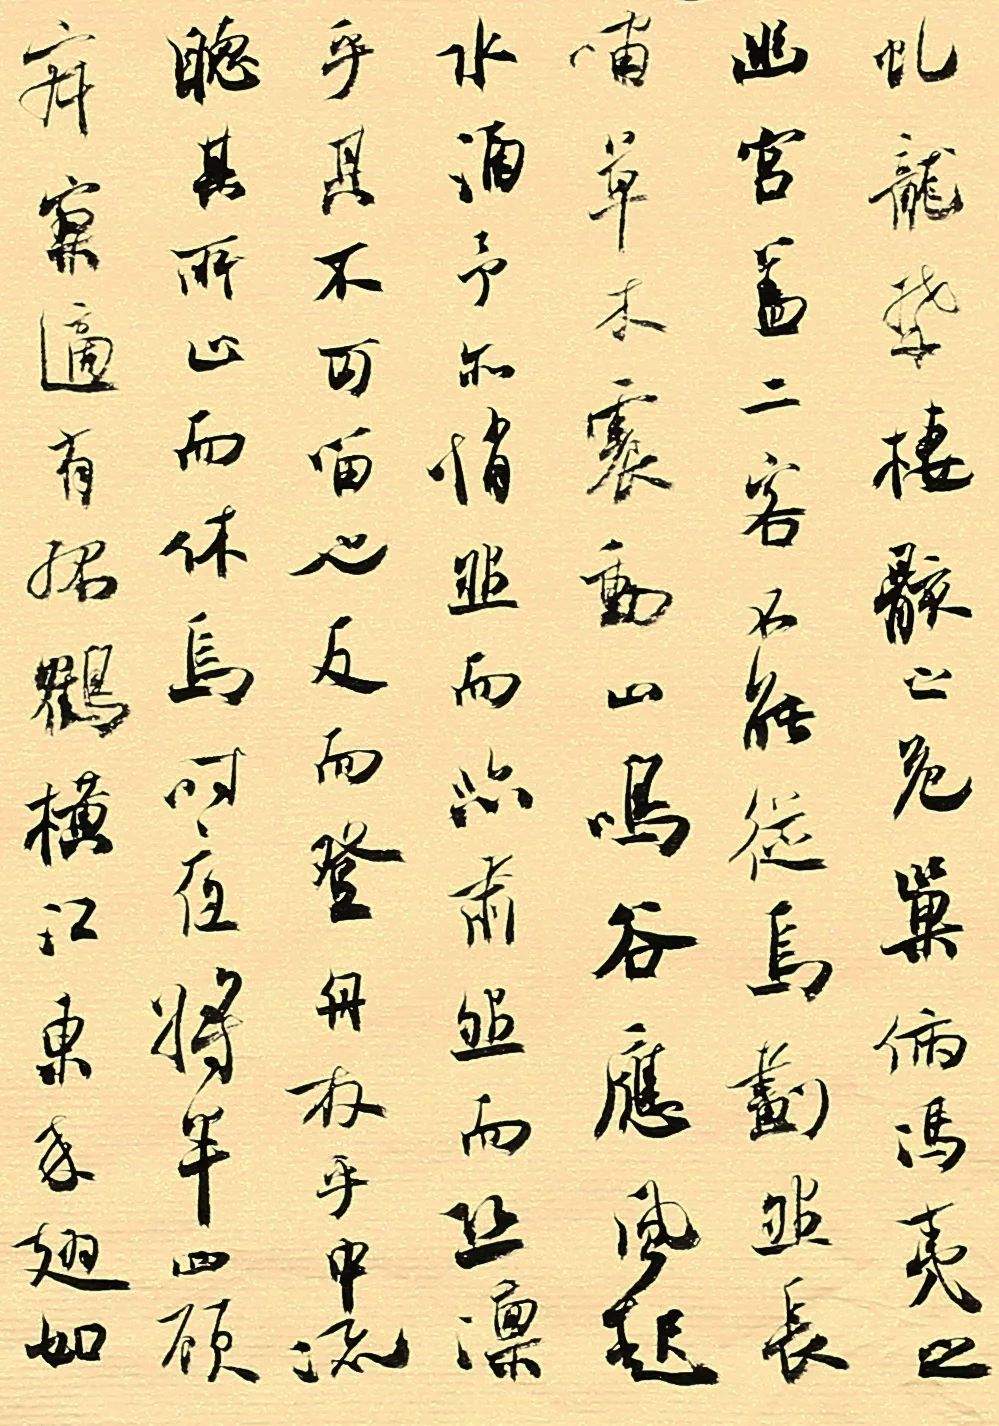 虬龍攀棲鶻之危巢俯馮夷之
幽宮蓋二客不能從焉劃然長
嘯草木震動山鳴谷應風起
水涌予亦悄然而悲肅然而恐凜
乎其不可留也反而登舟放乎中流
聽其所止而休焉時夜將半四顧
寂寥適有孤鶴橫江東來翅如